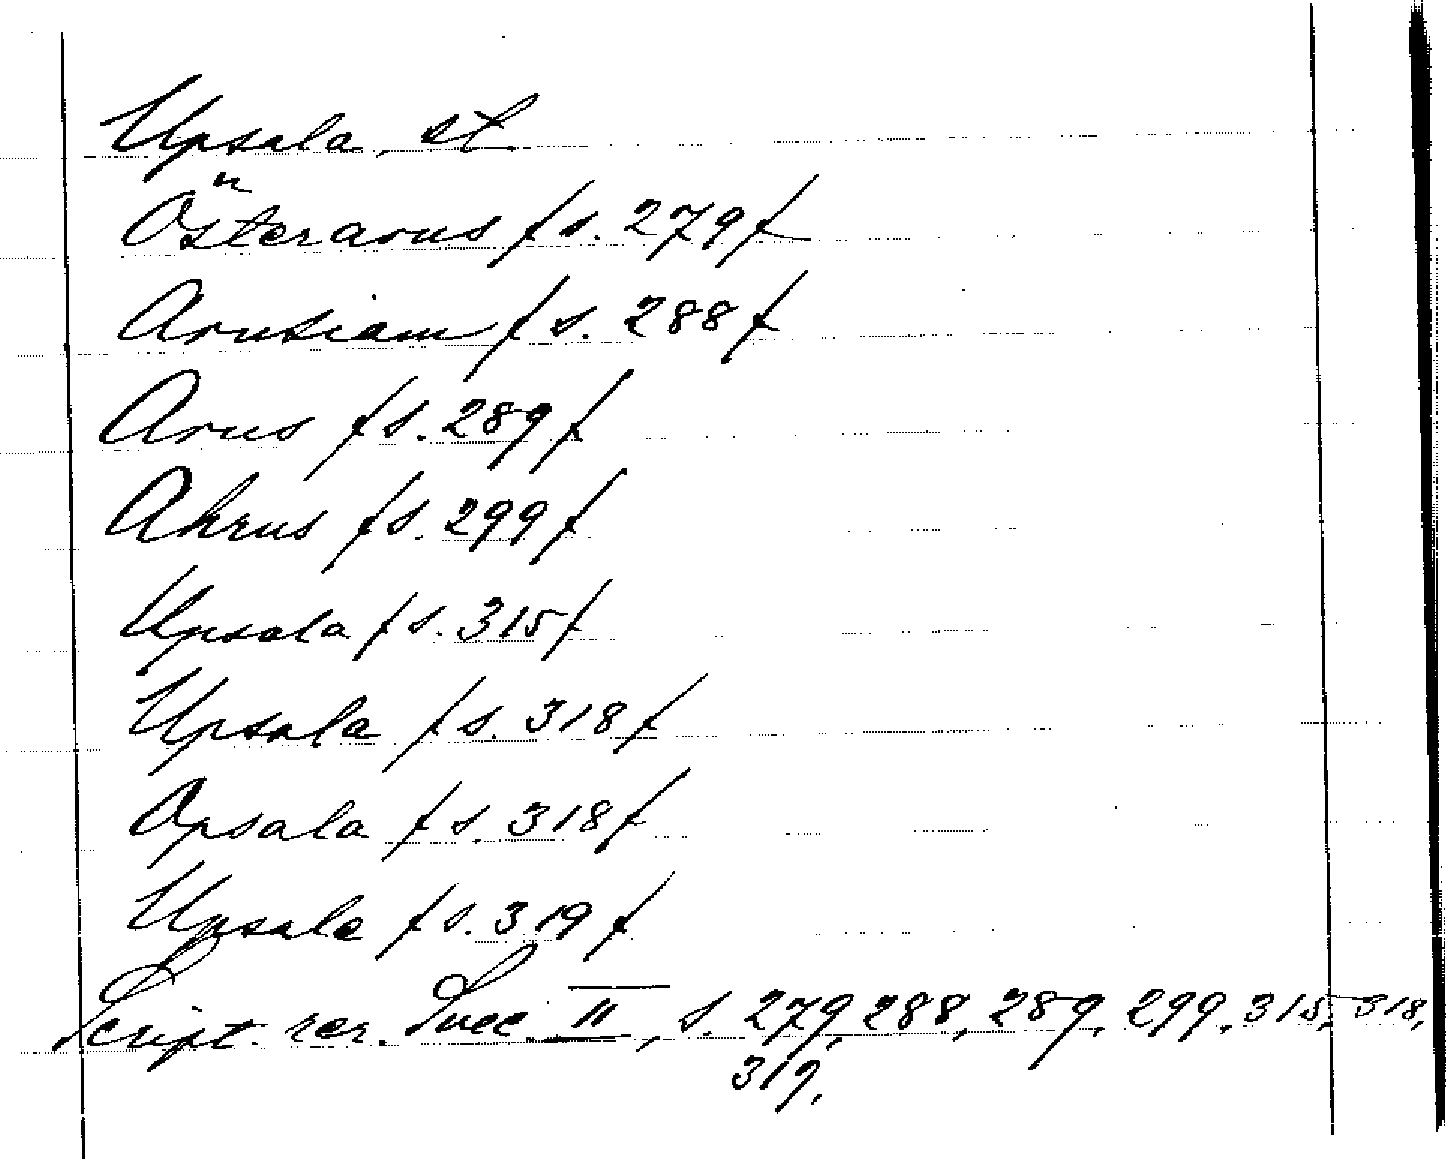 Upsala, st
Österarus /s. 279/
Arusiam /s. 288/
Arus /s. 289/
Ahrus /s. 299/
Upsala /s. 315/
Upsala /s. 318/
Opsala /s. 318/
Upsala /s. 319/
Script. rer. Svec. II, s. 279, 288, 289, 299, 315, 318,
319,